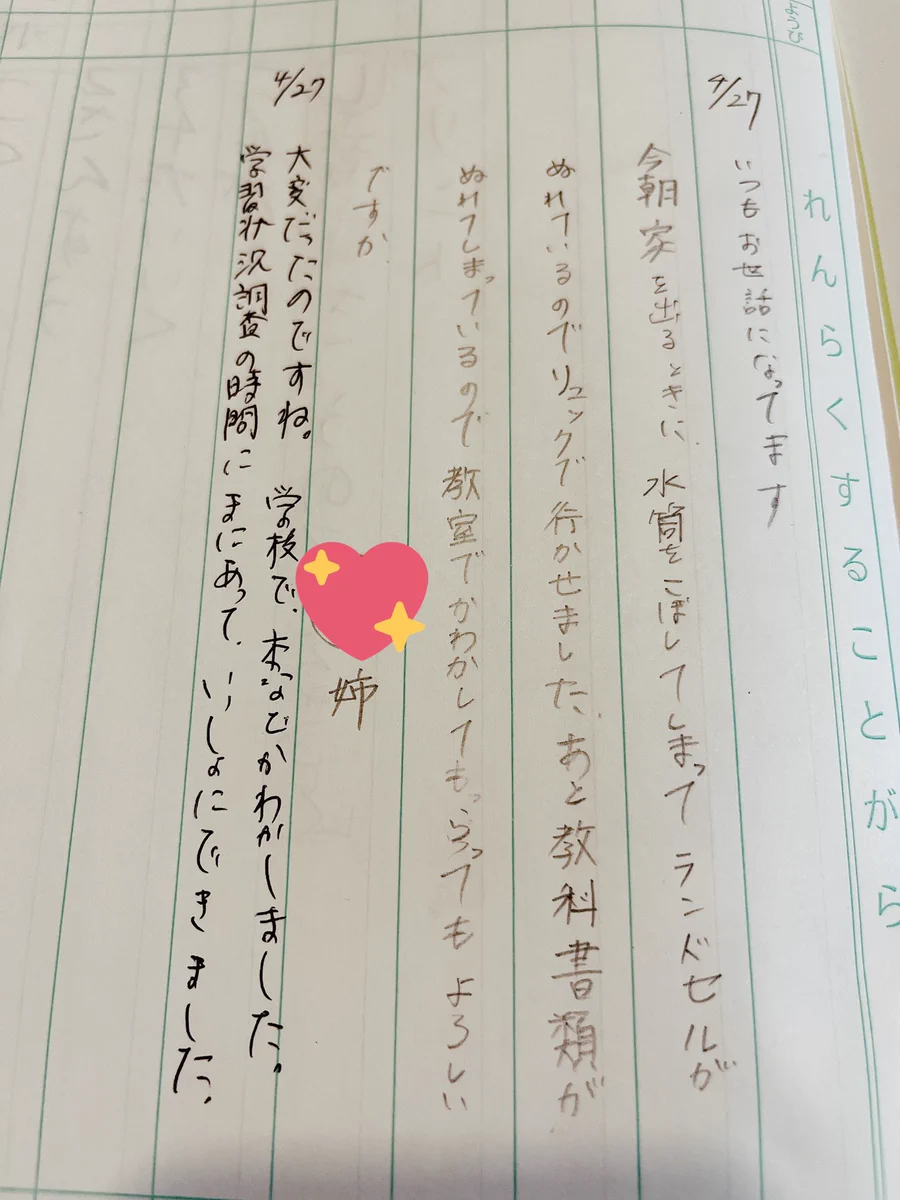 れんらくすることがら
4/27
いつもお世話になってます
今朝家を出るときに、水筒をこぼしてしまって ランドセルが
ぬれているのでリュックで行かせました、あと教科書類が
ぬれてしまっているので 教室でかわかしてもらってもよろしい
ですか
姉
4/27
大変だったのですね。学校で、本などかわかしました。
学習状況調査の時間に まにあって、いっしょにできました。